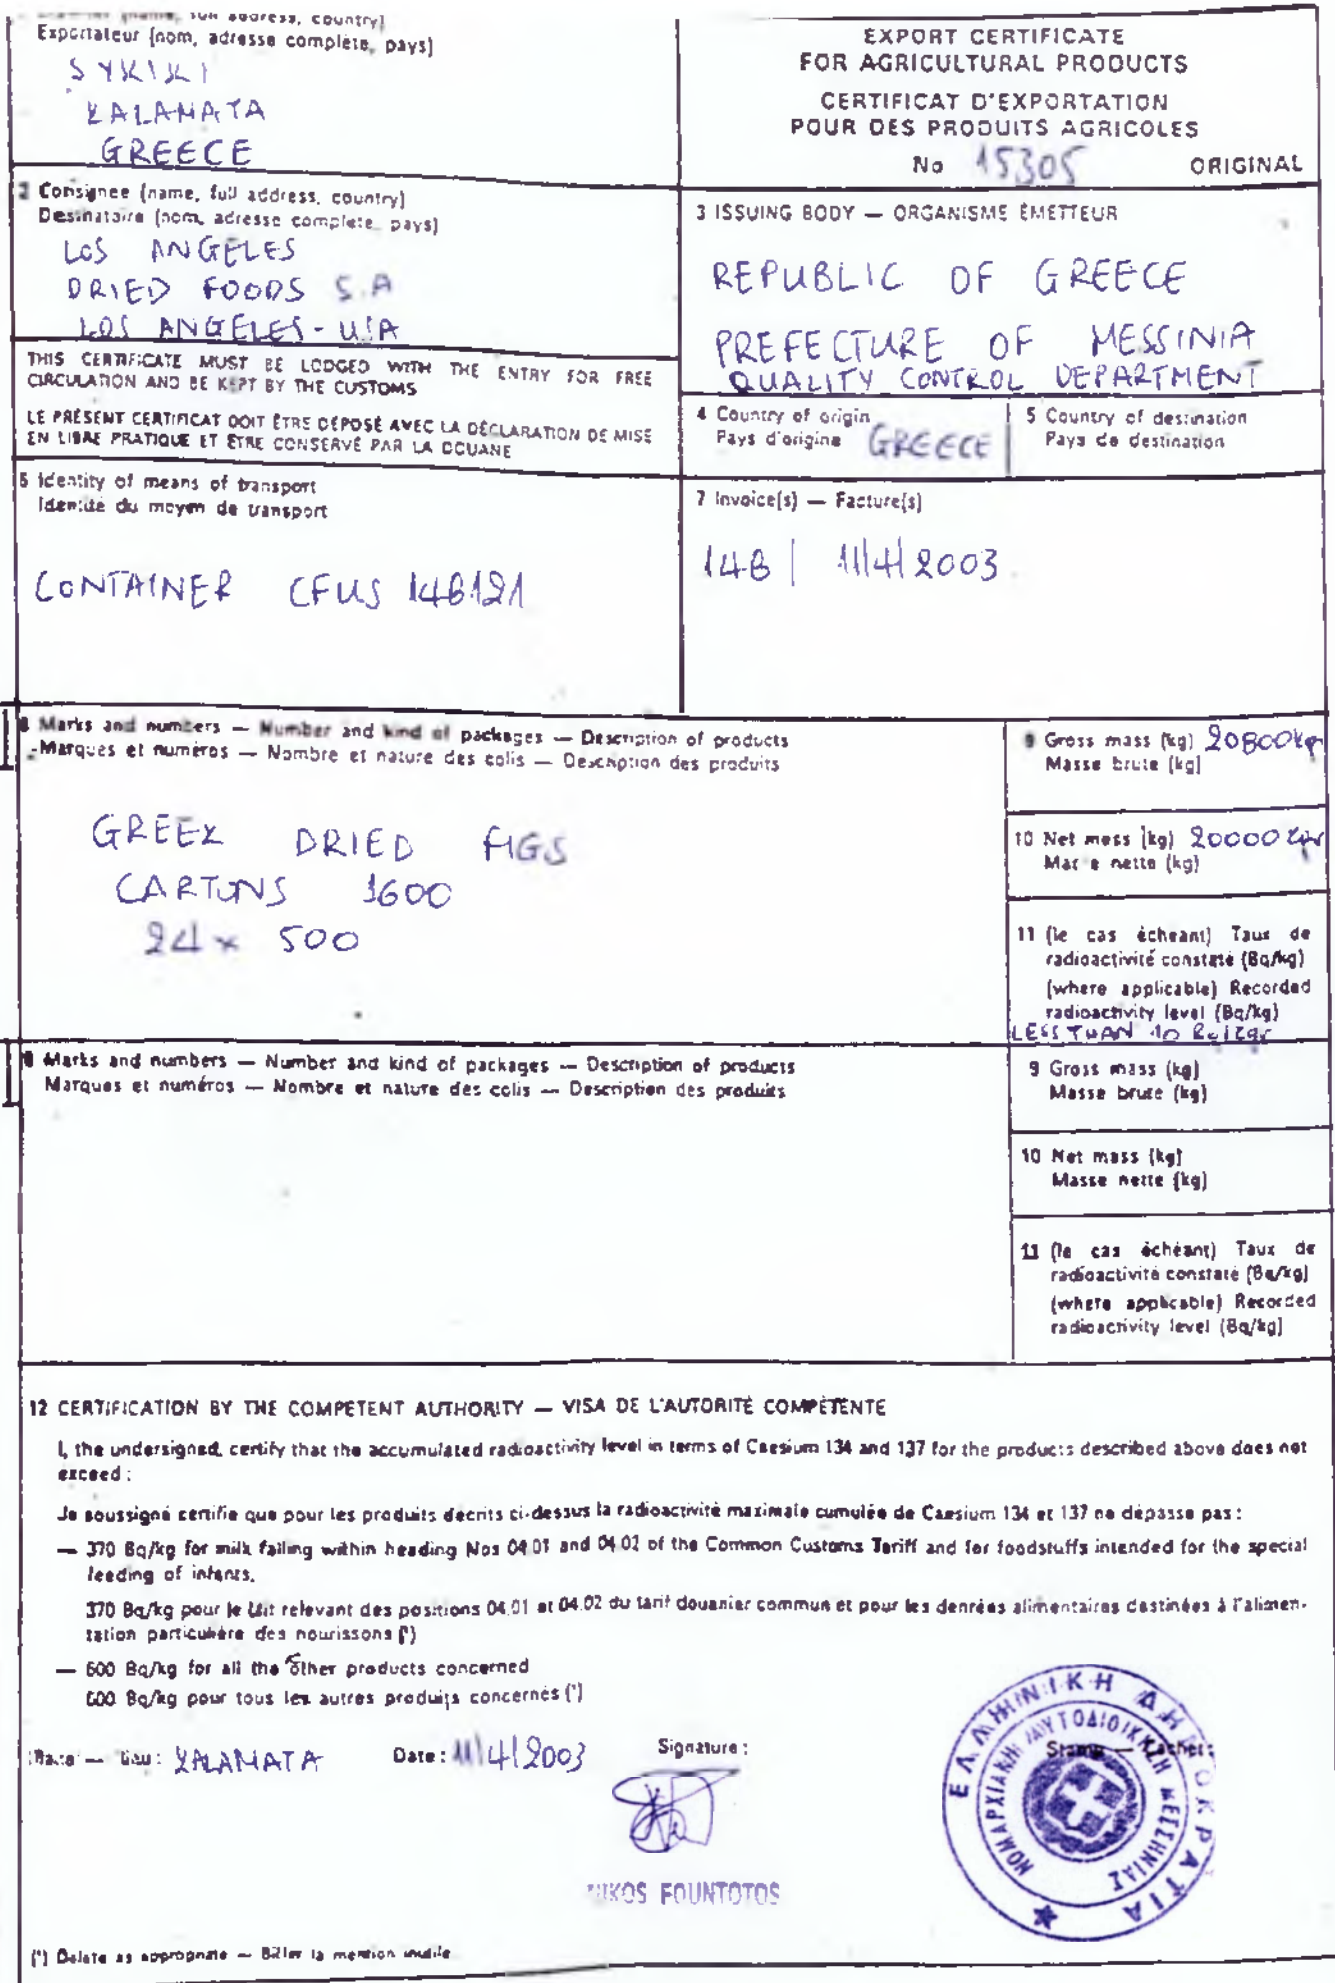 (name, full address, country)
Exportateur (nom, adresse complète, pays)
SYKIKI
KALAMATA
GREECE
EXPORT CERTIFICATE
FOR AGRICULTURAL PRODUCTS
CERTIFICAT D'EXPORTATION
POUR DES PRODUITS AGRICOLES
No 15305 ORIGINAL
2 Consignee (name, full address, country)
Destinataire (nom, adresse complète, pays)
LOS ANGELES
DRIED FOODS S.A
LOS ANGELES - USA
3 ISSUING BODY — ORGANISME ÉMETTEUR
REPUBLIC OF GREECE
PREFECTURE OF MESSINIA
QUALITY CONTROL DEPARTMENT
THIS CERTIFICATE MUST BE LODGED WITH THE ENTRY FOR FREE
CIRCULATION AND BE KEPT BY THE CUSTOMS
LE PRÉSENT CERTIFICAT DOIT ÊTRE DÉPOSÉ AVEC LA DÉCLARATION DE MISE
EN LIBRE PRATIQUE ET ÊTRE CONSERVÉ PAR LA DOUANE
4 Country of origin
Pays d'origine GREECE
5 Country of destination
Pays de destination
6 Identity of means of transport
Identité du moyen de transport
CONTAINER CFUS 148121
7 Invoice(s) — Facture(s)
148 | 11/4/2003
8 Marks and numbers — Number and kind of packages — Description of products
Marques et numéros — Nombre et nature des colis — Description des produits
GREEK DRIED FIGS
CARTONS 1600
24 x 500
9 Gross mass (kg) 20800 kgr
Masse brute (kg)
10 Net mass (kg) 20000 kgr
Masse nette (kg)
11 (le cas échéant) Taux de
radioactivité constaté (Bq/kg)
(where applicable) Recorded
radioactivity level (Bq/kg)
LESS THAN 10
8 Marks and numbers — Number and kind of packages — Description of products
Marques et numéros — Nombre et nature des colis — Description des produits
9 Gross mass (kg)
Masse brute (kg)
10 Net mass (kg)
Masse nette (kg)
11 (le cas échéant) Taux de
radioactivité constaté (Bq/kg)
(where applicable) Recorded
radioactivity level (Bq/kg)
12 CERTIFICATION BY THE COMPETENT AUTHORITY — VISA DE L'AUTORITÉ COMPÉTENTE
I, the undersigned, certify that the accumulated radioactivity level in terms of Caesium 134 and 137 for the products described above does not
exceed :
Je soussigné certifie que pour les produits décrits ci-dessus la radioactivité maximale cumulée de Caesium 134 et 137 ne dépasse pas :
— 370 Bq/kg for milk falling within heading Nos 04.01 and 04.02 of the Common Customs Tariff and for foodstuffs intended for the special
feeding of infants,
370 Bq/kg pour le lait relevant des positions 04.01 et 04.02 du tarif douanier commun et pour les denrées alimentaires destinées à l'alimen-
tation particulière des nourissons (*)
— 600 Bq/kg for all the other products concerned
600 Bq/kg pour tous les autres produits concernés (*)
Place — Lieu : KALAMATA Date : 11/4/2003 Signature : Stamp — Cachet :
NIKOS FOUNTOTOS
ΕΛΛΗΝΙΚΗ ΔΗΜΟΚΡΑΤΙΑ
ΝΟΜΑΡΧΙΑΚΗ ΑΥΤΟΔΙΟΙΚΗΣΗ ΜΕΣΣΗΝΙΑΣ
(*) Delete as appropriate — Biffer la mention inutile